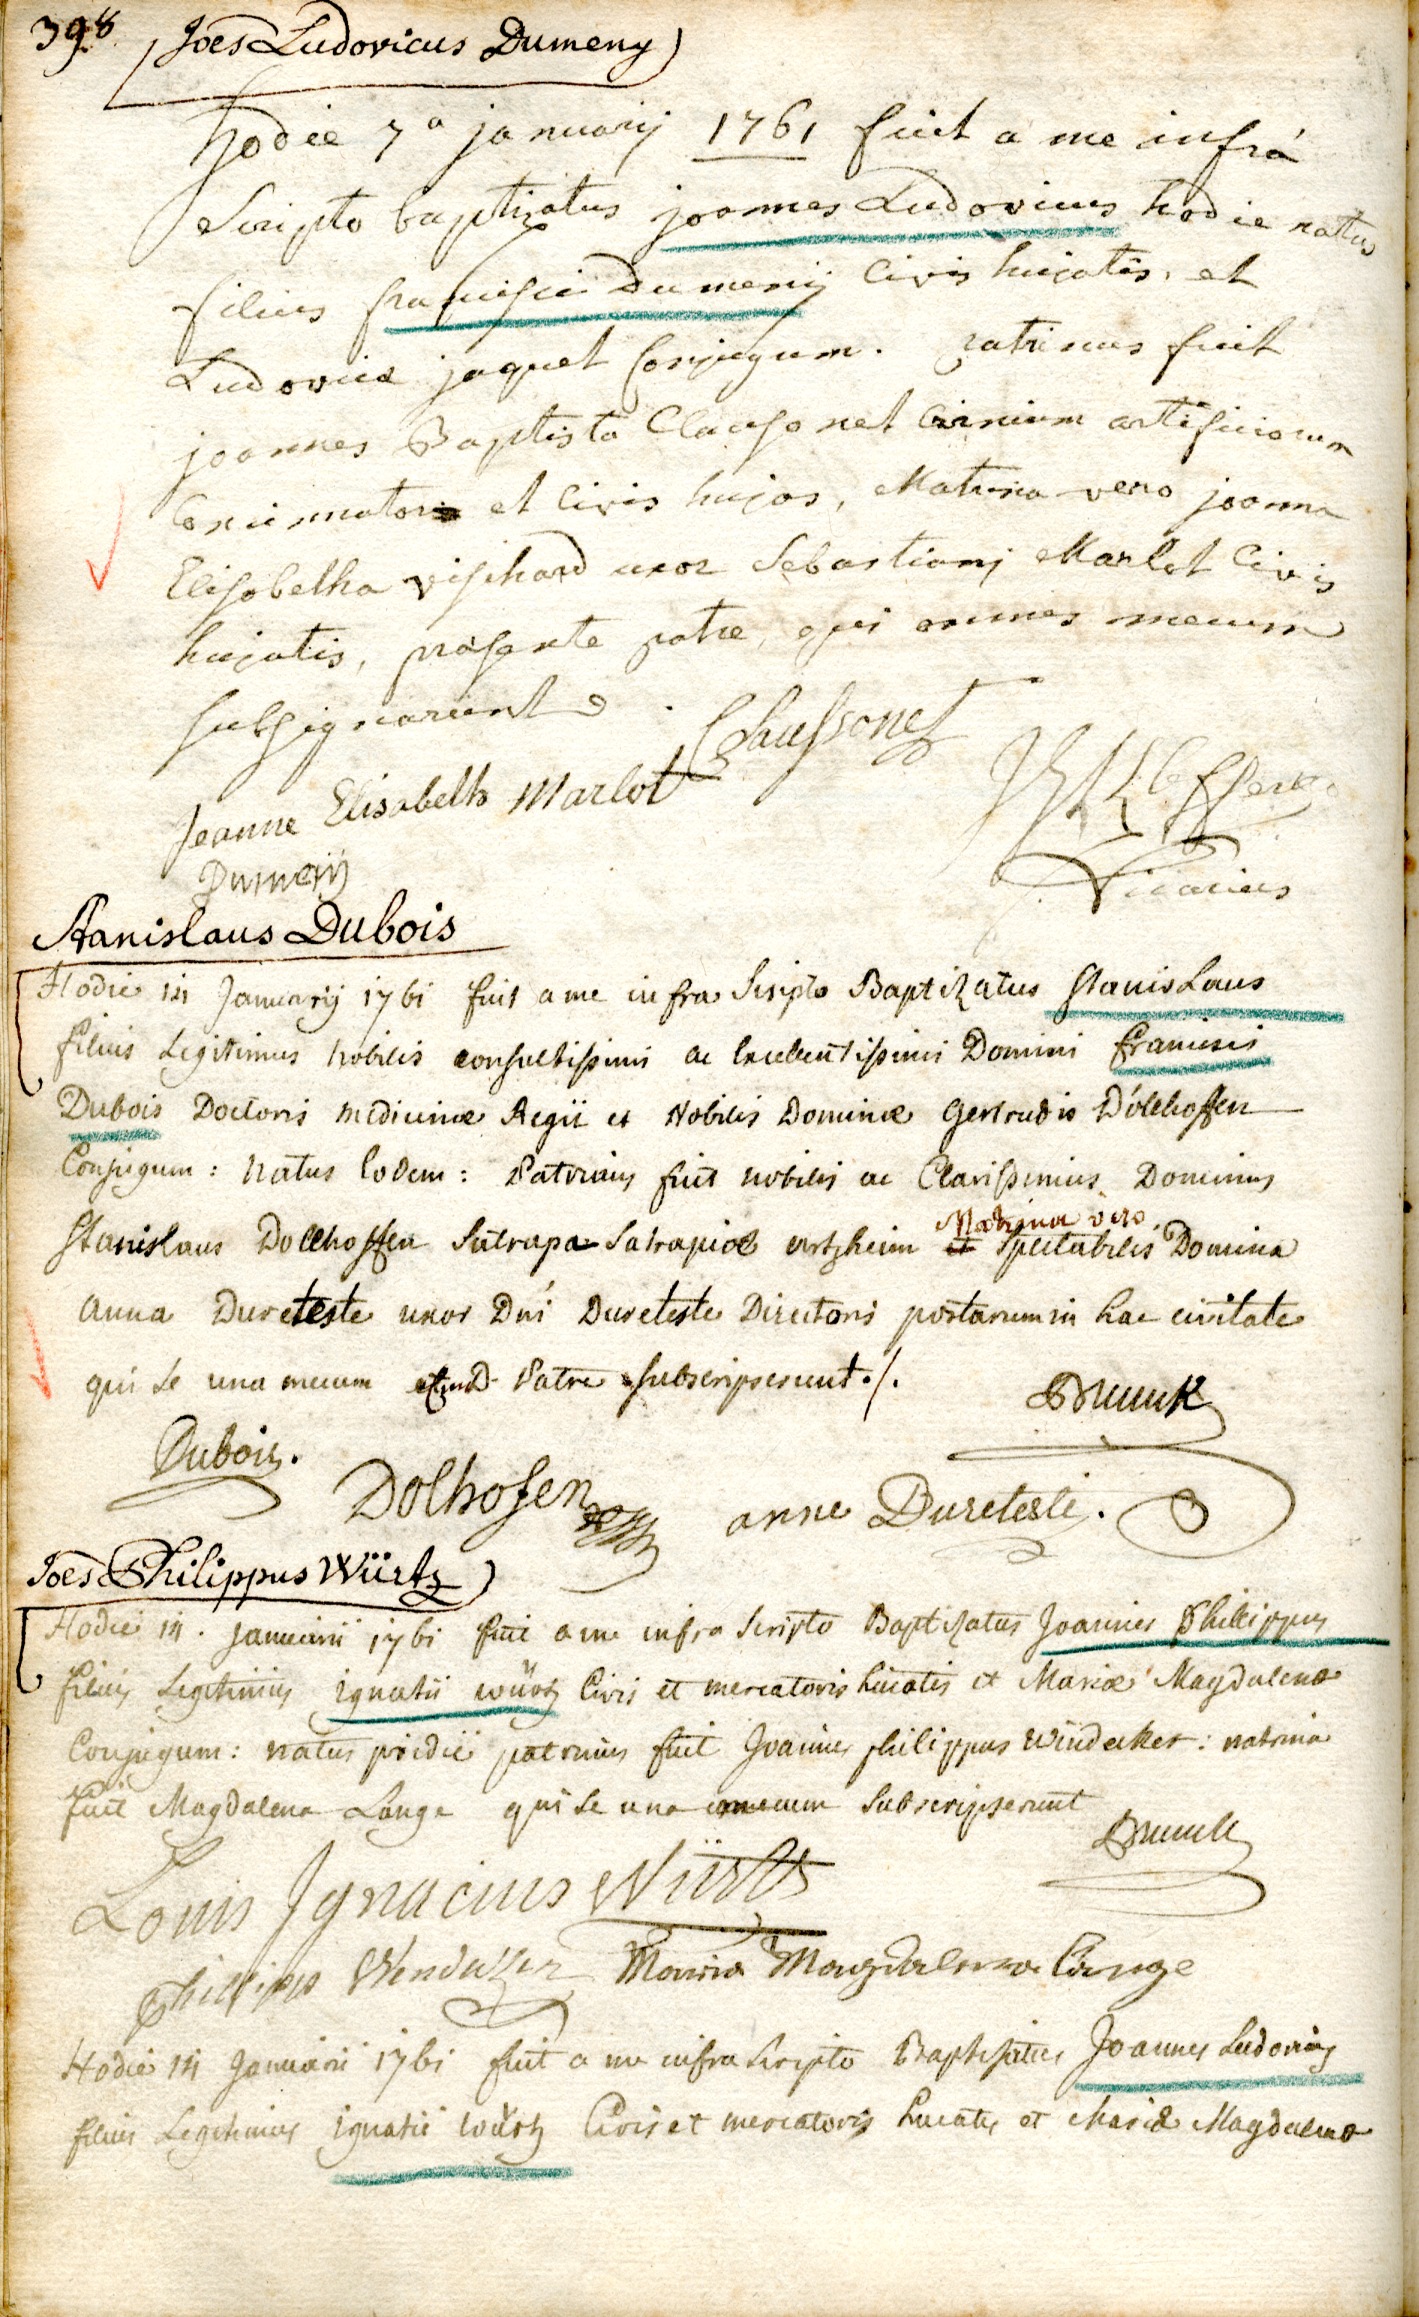 398
Joes Ludovicus Dumeny
hodie 7a januarij 1761 fuit a me infrá
Scripto baptizatus joannes Ludovicus hodie natus
filius francisci dumenij Civis hujatis, et
Ludovicæ jaquet Conjugum. patrinus fuit
joannes Baptista Clausonet artificiorum
et Civis hujas, Matrina vero joanna
Elisabetha vischard uxor Sebastianj Marlot Civis
hujatis, præsente patre, qui omnes mecum
subsignarunt
Chaussonet
Jeanne Elisabeth Marlot
Dumenÿ
Vicarius
Stanislaus Dubois
Hodie 14 Januarij 1761 fuit a me infra Scripto Baptizatus Stanislaus
filius Legitimus Nobilis consultissimi ac Excellentissimi Domini francisci
Dubois Doctoris medicinæ Regii et Nobilis Dominæ Gertrudis Döllhoffen
Conjugum: natus Eodem: Patrinus fuit nobilis ac Clarissimus Dominus
Stanislaus Dollhoffen Satrapa Satrapiæ et Spectabilis Domina
Matrina vero
Anna Dureteste uxor Dni Dureteste Directoris postarum in hac civitate
qui se una mecum Patre subscripserunt ./.
Brunck
Dubois.
Dolhofen
anne Dureteste.
Joes Philippus Würtz
Hodie 14. Januarii 1761 fuit a me infra Scripto Baptizatus Joannes Philippus
filius Legitimus Ignatii würtz Civis et mercatoris huiatis et Mariæ Magdalenæ
Conjugum: natus pridie patrinus fuit Joannes philippus Windecker: matrina
fuit Magdalena Lange qui se una mecum Subscripserunt
Brunck
Louis Ignacius Würtz
Philipus
Maria Magdalena Lange
Hodie 14 Januarii 1761 fuit a me infra Scripto Baptisatus Joannes Ludovicus
filius Legitimus Ignatii würtz Civis et mercatoris huiatis et Mariæ Magdalenæ